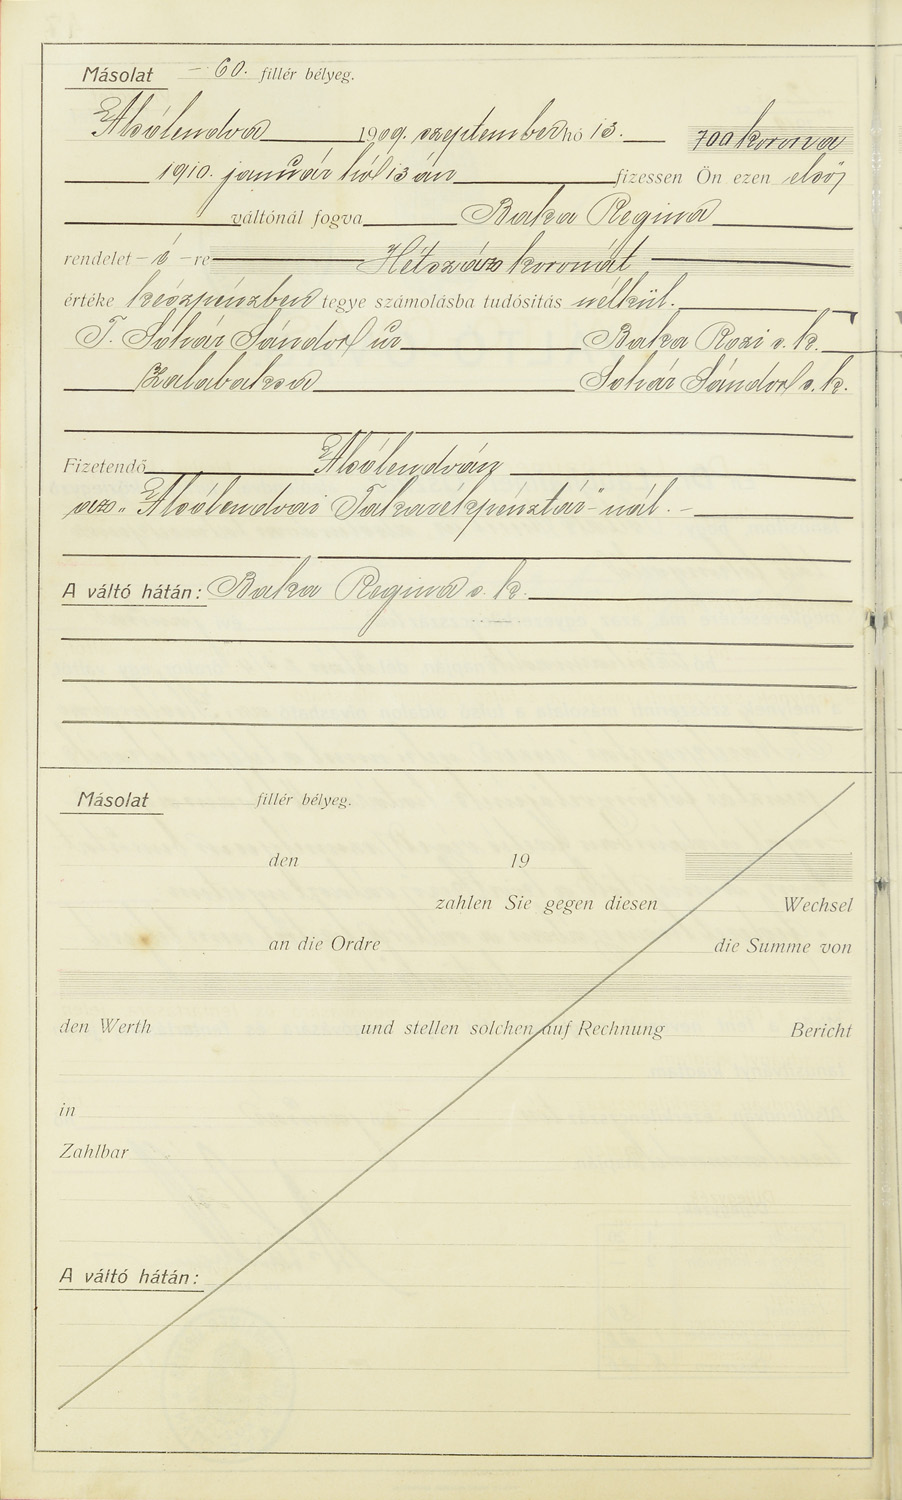 Másolat – 60. fillér bélyeg.
Alsólendva 1909. szeptember hó 13. 700 korona
1910. január hól 13 án fizessen Ön ezen első
váltónál fogva Baka Regina
rendelet – ő – re Hétszáz koronát
értéke készpénzben tegye számolásba tudósítás nélkül.
T. Sohár Sándor úr Baka Rozi s. k.
Zalabaksa Sohár Sándor s. k.
Fizetendő Alsólendván
az „Alsólendvai Takarékpénztár"-nál. –
A váltó hátán: Baka Regina s. k.
Másolat fillér bélyeg.
den 19
zahlen Sie gegen diesen Wechsel
an die Ordre die Summe von
den Werth und stellen solchen auf Rechnung Bericht
in
Zahlbar
A váltó hátán: